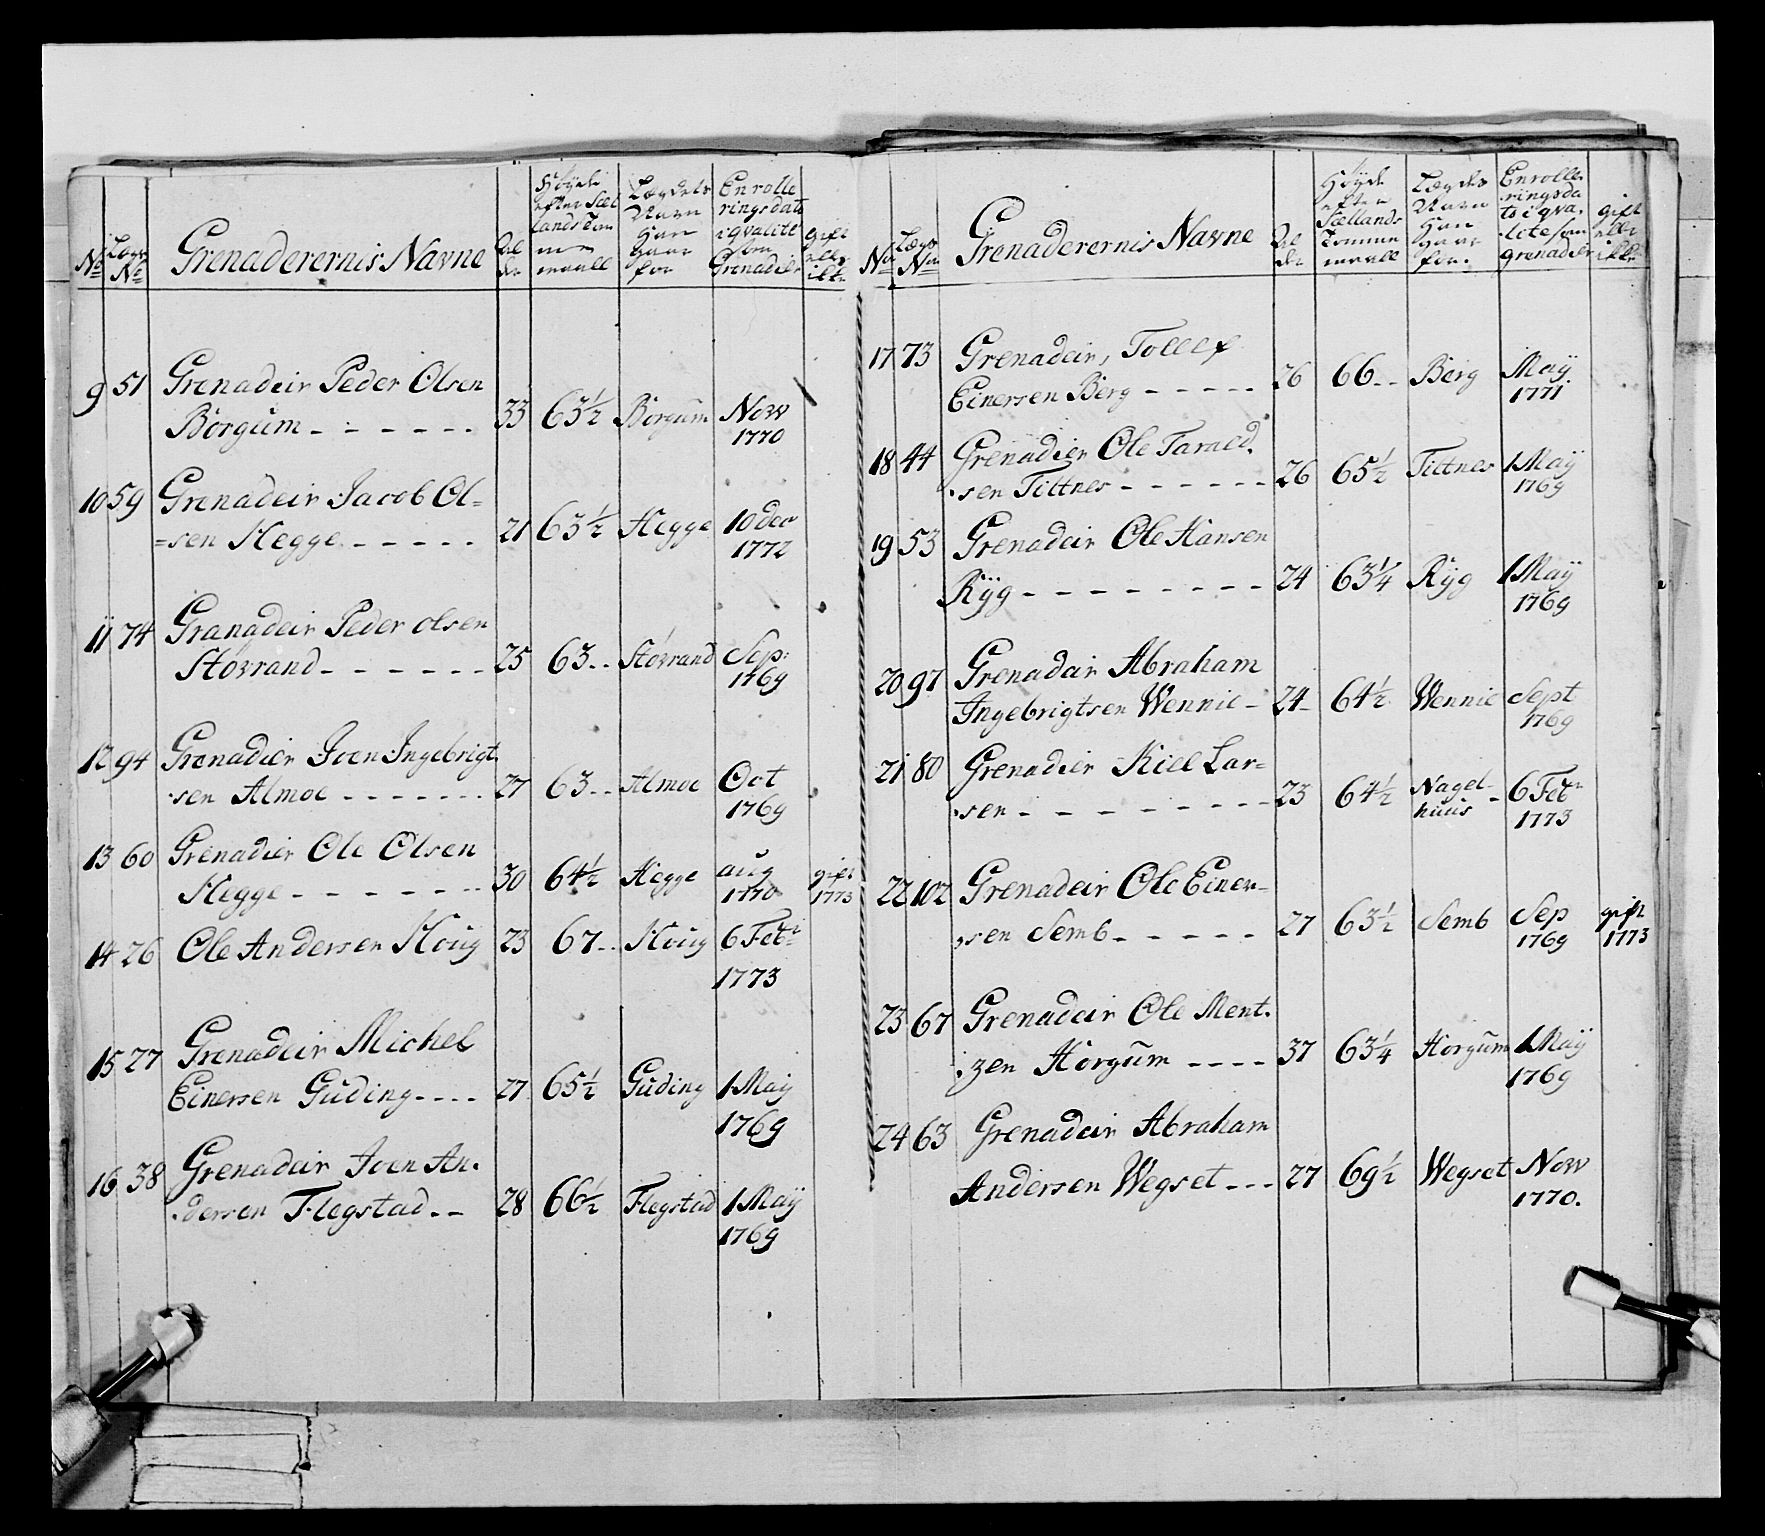 No Lægs No Grenaderernis Navne Alder Høyde efter Sællands Tommemaall Lægdets Navn Han staar for Enrolleringsdato i qvalite som Grenadeir gift eller ikke
9 51 Grenadeir Peder Olsen
Borgum - - - - - - 33 63½ Borgum Nov 1770
10 59 Grenadeir Jacob Ol=
=sen Hegge - - - - - 21 63½ Hegge 10 dec 1772
11 74 Granadeir Peder olsen
Störrand - - - - - - 25 63.. Störrand Sep: 1769
12 94 Grenadier Joen Ingebrigt
sen Almoe - - - - - - 27 63.. Almoe Oct 1769
13 60 Grenadier Ole Olsen
Hegge - - - - - - - 30 64½ Hegge aug 1770 gift 1773
14 26 Ole Andersen Houg 23 67.. Houg 6 Feb: 1773
15 27 Grenadeir Michel
Einersen Guding - - - - 27 65½ Guding 1 Maÿ 1769
16 38 Grenadeir Joen An.
dersen Flegstad - - 28 66½ Flegstad 1 Maÿ 1769
No Lægs No Grenaderernis Navne Alder Høyde efter Sællands Tommemaall Lægdes Navn Han staar for. Enrolleringsdato i qvalite som grenadeir gift eller ikke
17 73 Grenadeir, Tollef
Einersen Berg - - - - - 26 66.. Berg Maÿ 1771
18 44 Grenadier Ole Tarald.
sen Tittnes - - - - - - 26 65½ Tittnes 1 Maÿ 1769
19 53 Grenadeir Ole Hansen
Rÿg - - - - - - - - - 24 63¼ Rÿg 1 Maÿ 1769
20 97 Grenadeir Abraham
Ingebrigtsen Wennie - 24 64½ Wennie Sept 1769
21 80 Grenadier Kiel Lar=
sen - - - - - - - - - 23 64½ Nagel-huus 6 Feb: 1773
22 102 Grenadeir Ole Einer-
sen Semb - - - - - 27 63½ Semb Sep 1769 gift 1773
23 67 Grenadeir Ole Ment.
zen Horgum - - - - 37 63¼ Horgum 1 Maÿ 1769
24 63 Grenadeir Abraham
Andersen Wegset - - - 27 69½ Wegset Nov 1770.